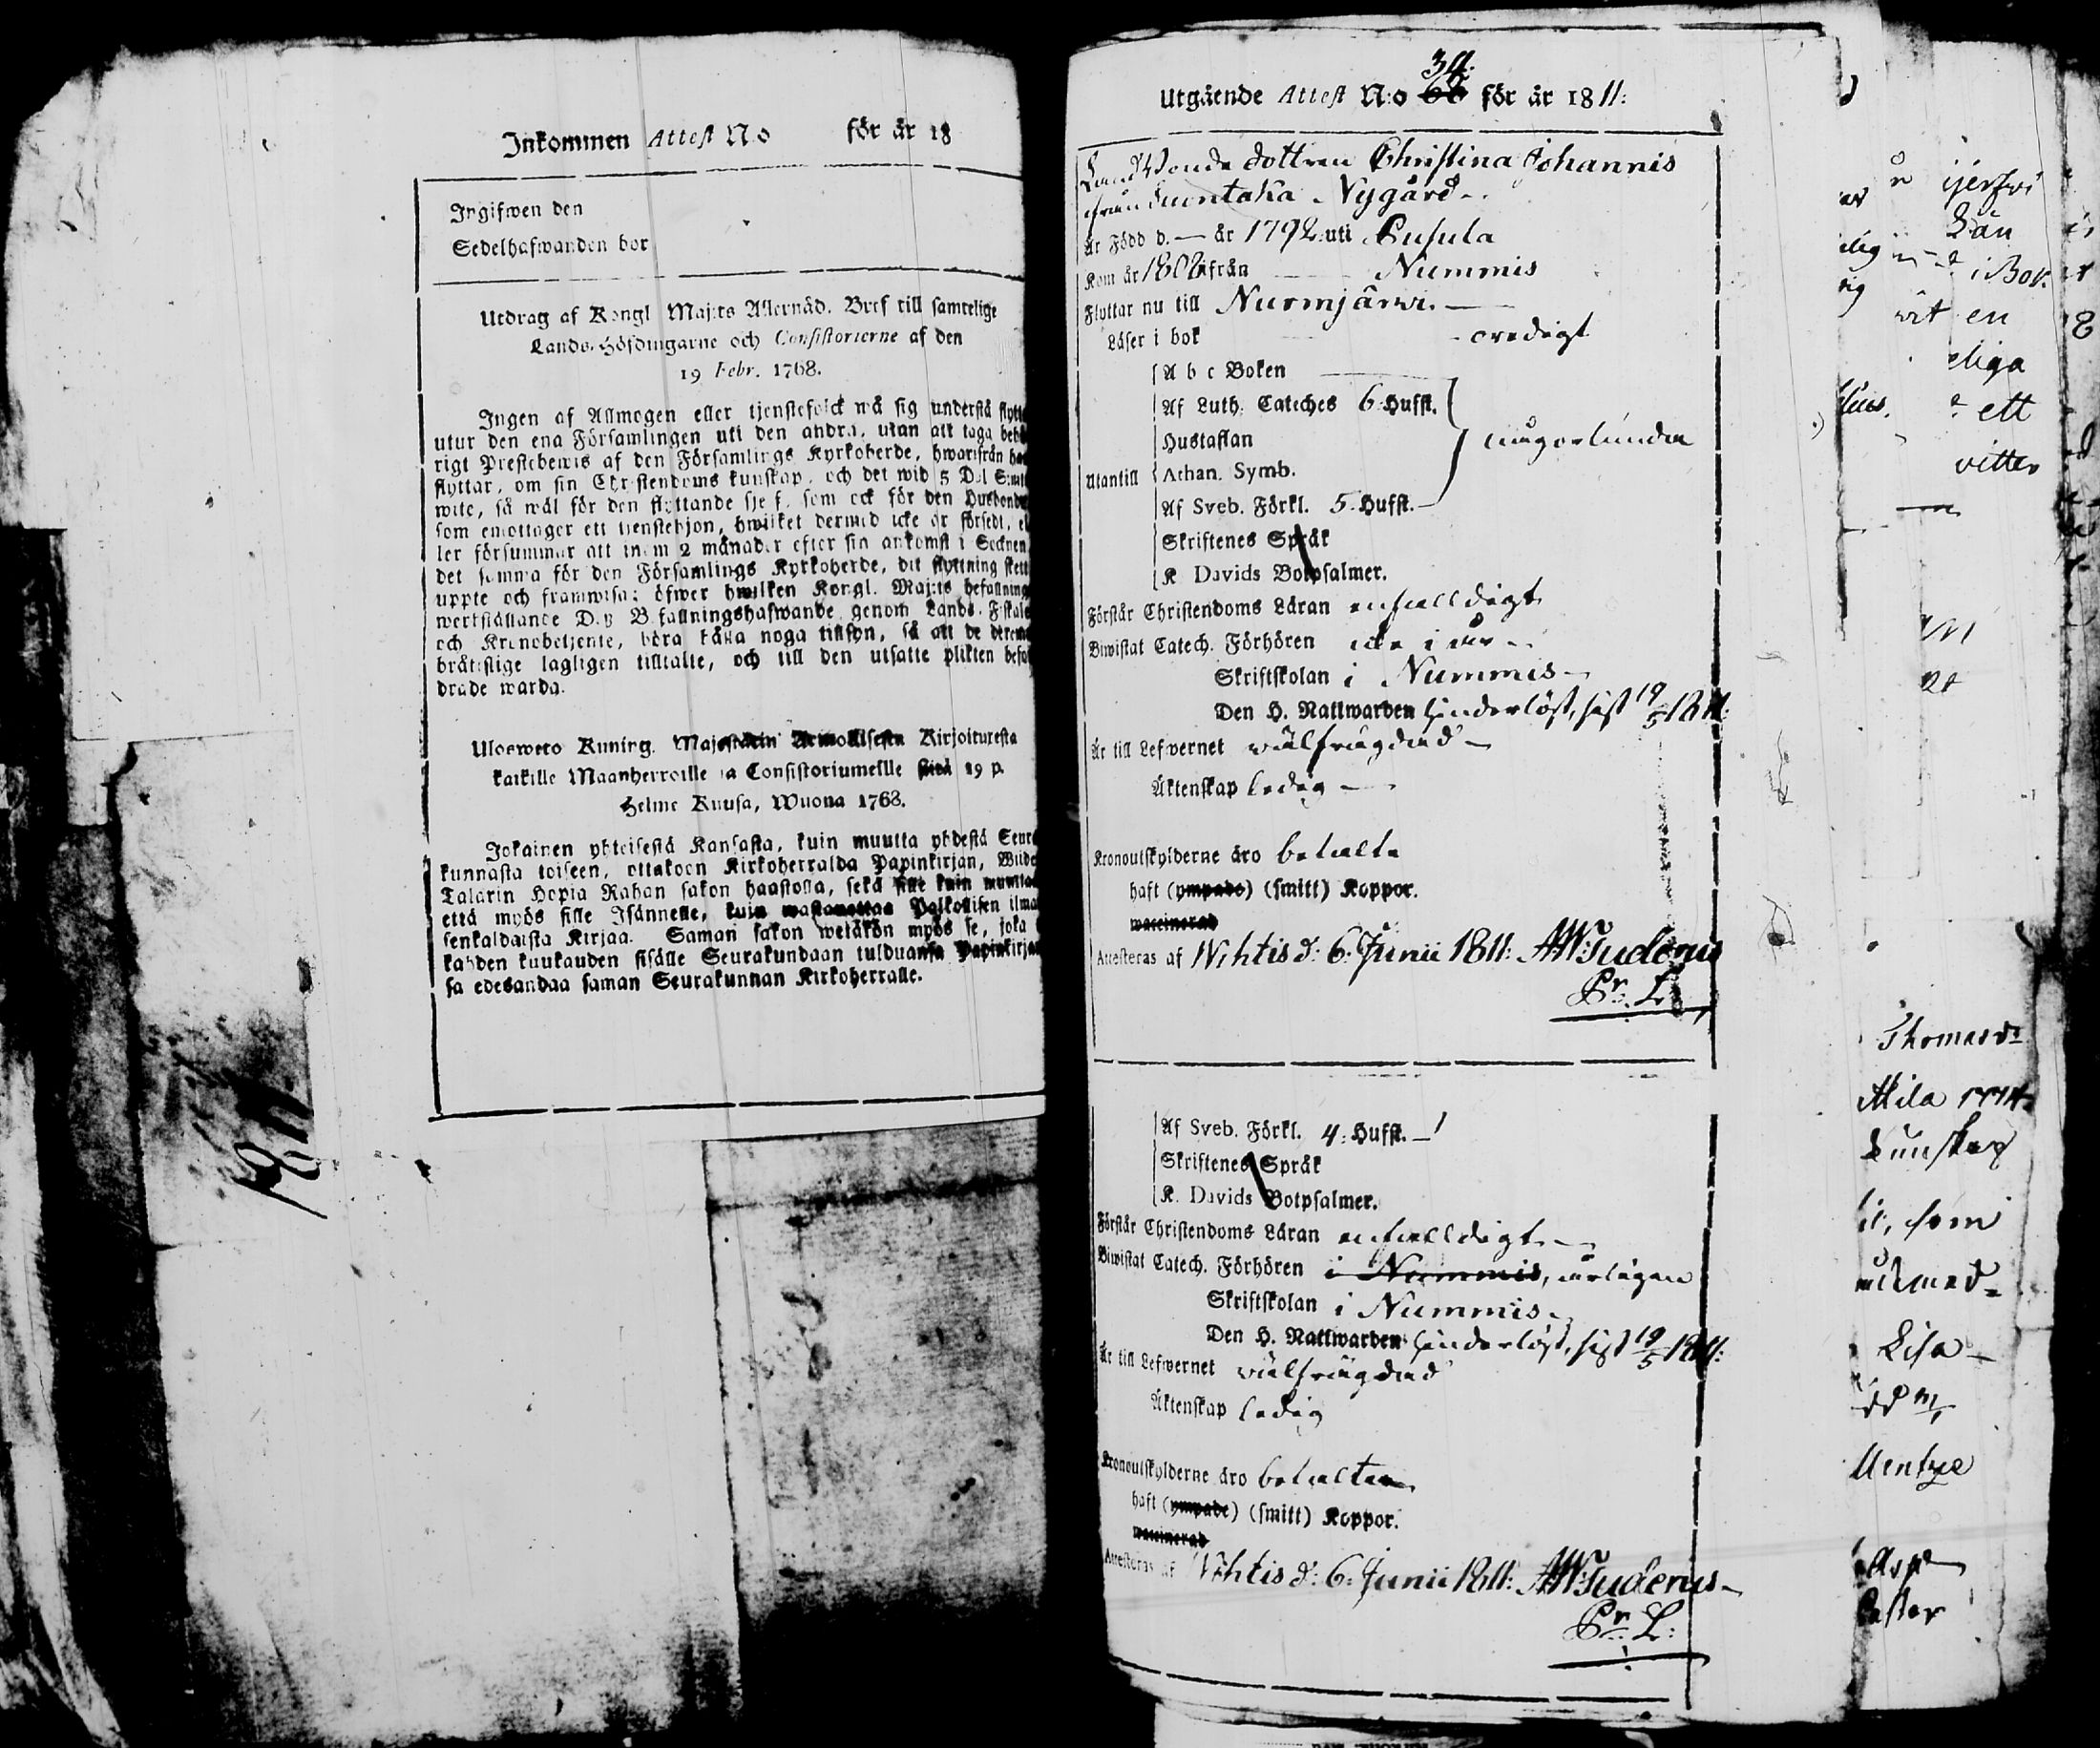 Inkommen Attest N:o för år 18
Ingifwen den
Sedelhafwanden bor
Utdrag af Kongl Maj:ts Allernåd. Bref till samtelige
Lands-Höfdingarne och Consistorierne af den
19 Febr. 1768.
Ingen af Allmogen eller tjenstefolck må sig understå flytt
utur den ena Församlingen uti den andra, utan att taga behö
rigt Prestebewis af den Församlings Kyrkoherde, hwarifrån han
flyttar, om sin Christendoms kunskap, och det wid 5 Dal S:mt
wite, så wäl för den flyttande sjelf, som ock för den Husbonde
som emottager ett tjenstehjon, hwilket dermed icke är försedt, el
ler försummar att inom 2 månader efter sin ankomst i Socknen
det samma för den Församlings Kyrkoherde, dit flyttning skett
uppte och framwisa; öfwer hwilken Kongl. Maj:ts befallning
werkställande D:y Befallningshafwande genom Lands-Fiskale
och Kronobetjente, böra hålla noga tillsyn, så att de deremot
bråtislige lagligen tilltalte, och till den utsatte plikten befor
drade warda.
Ulosweto Kuning. Majestätin Armollisesta Kirjoituxesta
kaikille Maanherroille ja Consistoriumeille siitä 19 p.
Helme Kuusa, Wuona 1768.
Jokainen yhteisestä Kansasta, kuin muutta yhdestä Seura
kunnasta toiseen, ottakoon Kirkoherralda Papinkirjan, Wiide
Talarin Hopia Rahan sakon haastolla, sekä sille kuin muutta
että myös sille Isännelle, kuin wastanottaa Palkollisen ilma
senkaldaista Kirjaa. Saman sakon wetäkön myös se, joka
kahden kuukauden sisälle Seurakundaan tulduansa Papinkirjan
sa edesandaa saman Seurakunnan Kirkoherralle.
1811.
34.
Utgående Attest N:o 66 för år 1811:
Land Bonde dottren Christina Johannis
ifrån Suontaka Nygård
är Född d. — år 1792 uti Pusula
Kom år 1808 ifrån Nummis
Flyttar nu till Nurmjärwi.
Läser i bok oredigt
A b c Boken
Af Luth. Cateches 6 Hufst.
Hustaflan någorlunda
Utantill Athan. Symb.
Af Sveb. Förkl. 5. Hufst.
Skriftenes Språk
K Davids Botpsalmer.
Förstår Christendoms Läran enfalldigt
Biwistat Catech. Förhören icke i år
Skriftskolan i Nummis
Den H. Nattwarden hinderlöst, sist 19/5 1811:
Är till Lefwernet wälfrägdad
Äktenskap ledig
Kronoutskylderne äro betalte
haft (ympade) (smitt) Koppor.
waccinerad
Attesteras af Wihtis d: 6. Junii 1811: AW:Tuderus
Pr. L.
Af Sveb. Förkl. 4: Hufst.
Skriftenes Språk
K. Davids Botpsalmer.
Förstår Christendoms Läran enfalldigt
Biwistat Catech. Förhören i Nummis, årligen
Skriftskolan i Nummis
Den H. Nattwarden hinderlöst, sist 19/5 1811:
Är till Lefwernet wälfrägdad
Äktenskap ledig
Kronoutskylderne äro betalte
haft (ympade) (smitt) Koppor.
waccinerad
Attesteras af Wihtis d: 6. Junii 1811: AW:Tuderus
Pr. L:
ijerfwi
i Bok.
en
eliga
ett
Thomasd:
Kunskap
som
Lisa
Pastor